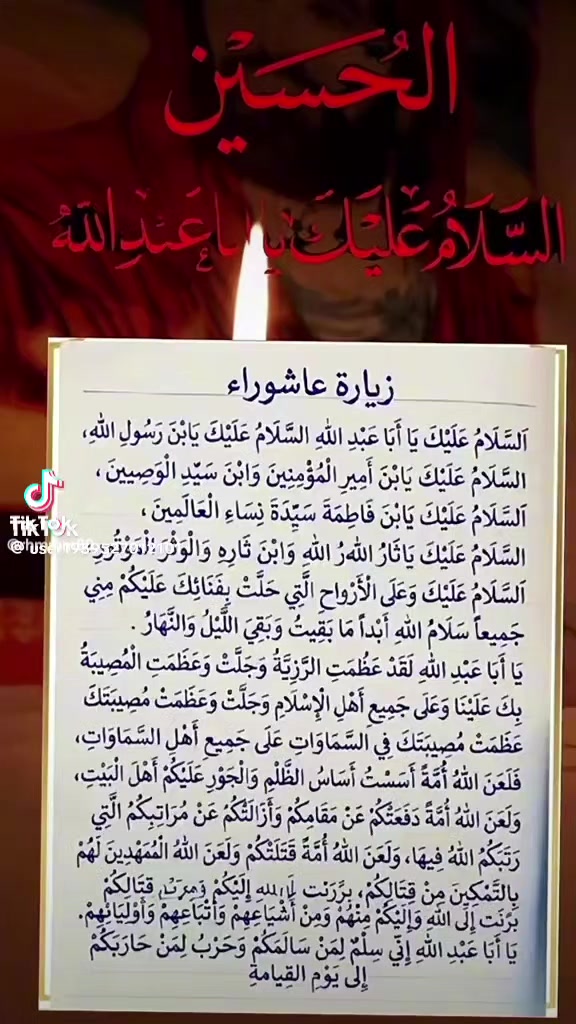 الحُسَيْن
السَّلَامُ عَلَيْكَ يا ابا عَبْدِ اللهُ
زيارة عاشوراء
اَلسَّلَامُ عَلَيْكَ يَا أَبَا عَبْدِ اللهِ السَّلَامُ عَلَيْكَ يَابْنَ رَسُولِ اللهِ،
السَّلَامُ عَلَيْكَ يَابْنَ أَمِيرِ الْمُؤْمِنِينَ وَابْنَ سَيِّدِ الْوَصِيينَ ،
اَلسَّلَامُ عَلَيْكَ يَابْنَ فَاطِمَةَ سَيِّدَةَ نِسَاءِ الْعَالَمِينَ ،
السَّلَامُ عَلَيْكَ يَاثَارُ اللهِ وَابْنَ ثَارِهِ وَالْوَثْرَ الْمَوْتُورَ
اَلسَّلَامُ عَلَيْكَ وَعَلَى الْأَرْوَاحِ الَّتِي حَلَّتْ بِفَنَائِكَ عَلَيْكُمْ مِنِي
جَمِيعاً سَلَامُ اللهِ أَبْداً مَا بَقِيتُ وَبَقِيَ اللَّيْلُ وَالنَّهَارُ .
يَا أَبَا عَبْدِ اللهِ لَقَدْ عَظُمَتِ الرَّزِيَّةُ وَجَلَّتْ وَعَظَمَتِ الْمُصِيبَةُ
بِكَ عَلَيْنَا وَعَلَى جَمِيعِ أَهْلِ الْإِسْلَامِ وَجَلَّتْ وَعَظَمَتْ مُصِيبَتَكَ
عَظَمَتْ مُصِيبَتَكَ فِي السَّمَاوَاتِ عَلَى جَمِيعِ أَهْلِ السَّمَاوَاتِ،
فَلَعَنَ اللهُ أُمَّةً أَسَسْتُ أَسَاسُ الظُّلْمِ وَالْجَوْرِ عَلَيْكُمْ أَهْلَ الْبَيْتِ،
وَلَعَنَ اللهُ أُمَّةً دَفَعَتْكُمْ عَنْ مَقَامِكُمْ وَأَزَالَتْكُمْ عَنْ مُرَاتِبِكُمُ الَّتِي
رَتَبَكُمُ اللهُ فِيهَا، وَلَعَنَ اللهُ أُمَّةً قَتَلَتْكُمْ وَلَعَنَ اللهُ الْمُمَهْدِينَ لَهُمْ
بِالتَّمْكِينِ مِنْ قِتَالِكُمْ، إِلَيْكُمْ قِتَالِكُمْ
إِلَى اللهِ وَإِلَيْكُمْ مِنْهُمْ وَمِنْ أَشْيَاعِهِمْ وَأَتْبَاعِهِمْ وَأَوْلِيَائِهِمْ.
يَا أَبَا عَبْدِ اللهِ إِنِّي سِلْمٌ لِمَنْ سَالَمَكُمْ وَحَرْبُ لِمَنْ حَارَبَكُمْ
إِلى يَوْمِ القِيامةِ
TikTok